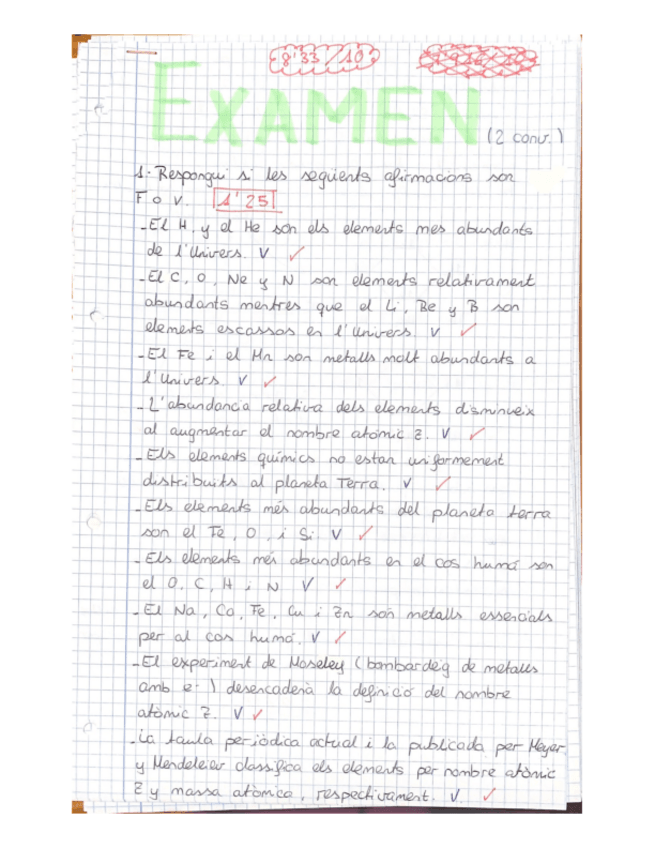 8'33/10
EXAMEN
(2 conv.)
1. Respongui si les següents afirmacions son
F o V. 1'25
-El H, y el He son els elements mes abundants
de l'Univers. V ✓
-El C, O, Ne y N son elements relativament
abundants mentres que el Li, Be y B son
elements escassos en l'Univers. V ✓
-El Fe i el Mn son metalls molt abundants a
l'Univers. V ✓
-L'abundancia relativa dels elements disminueix
al augmentar el nombre atòmic Z. V ✓
-Els elements químics no estan uniformement
distribuits al planeta Terra. V ✓
-Els elements més abundants del planeta terra
son el Fe, O, i Si V ✓
-Els elements més abundants en el cos humà son
el O, C, H i N V ✓
-El Na, Ca, Fe, Cu i Zn són metalls essencials
per al cos humà. V ✓
-El experiment de Moseley (bombardeig de metalls
amb e-) desencaderà la definició del nombre
atòmic Z. V ✓
-La taula periòdica actual i la publicada per Meyer
y Mendeleiev classifica els elements per nombre atòmic
Z y massa atòmica, respectivament. V ✓